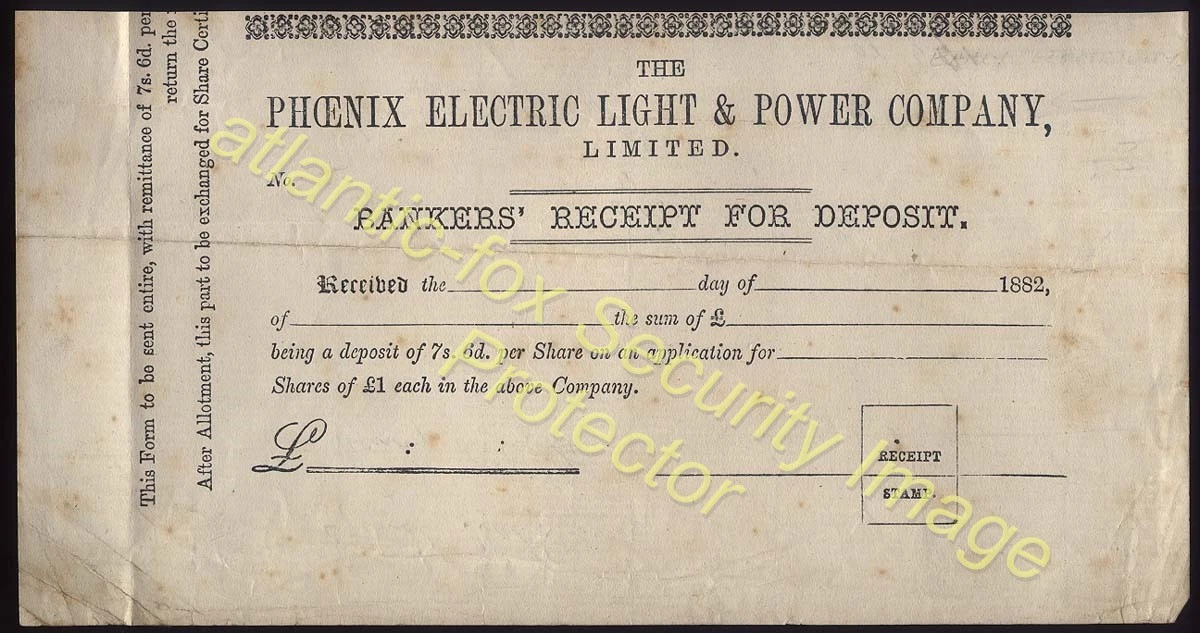 THE
PHŒNIX ELECTRIC LIGHT & POWER COMPANY,
LIMITED.
No.
BANKERS' RECEIPT FOR DEPOSIT.
Received the day of 1882,
of the sum of £
being a deposit of 7s. 6d. per Share on an application for
Shares of £1 each in the above Company.
£ : :
RECEIPT
STAMP.
This Form to be sent entire, with remittance of 7s. 6d. per
return the
After Allotment, this part to be exchanged for Share Certi
atlantic-fox Security Image
Protector